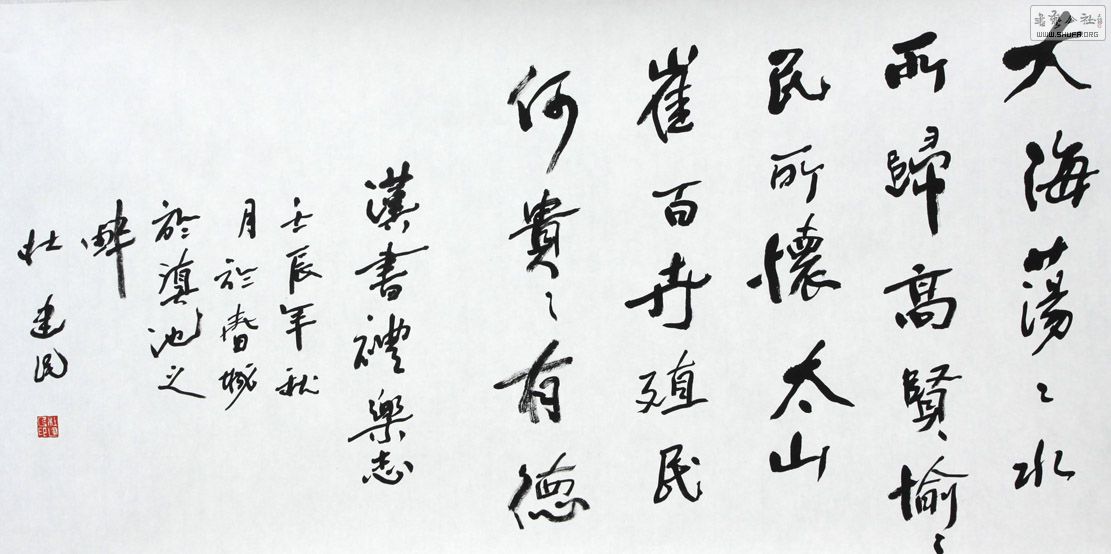 大海蕩〻水
所歸高賢愉〻
民所懷太山
崔百卉殖民
何貴〻有德
漢書禮樂志
壬辰年秋
月於春城
於滇池之
畔
杜建民
WWW.SHUFA.ORG